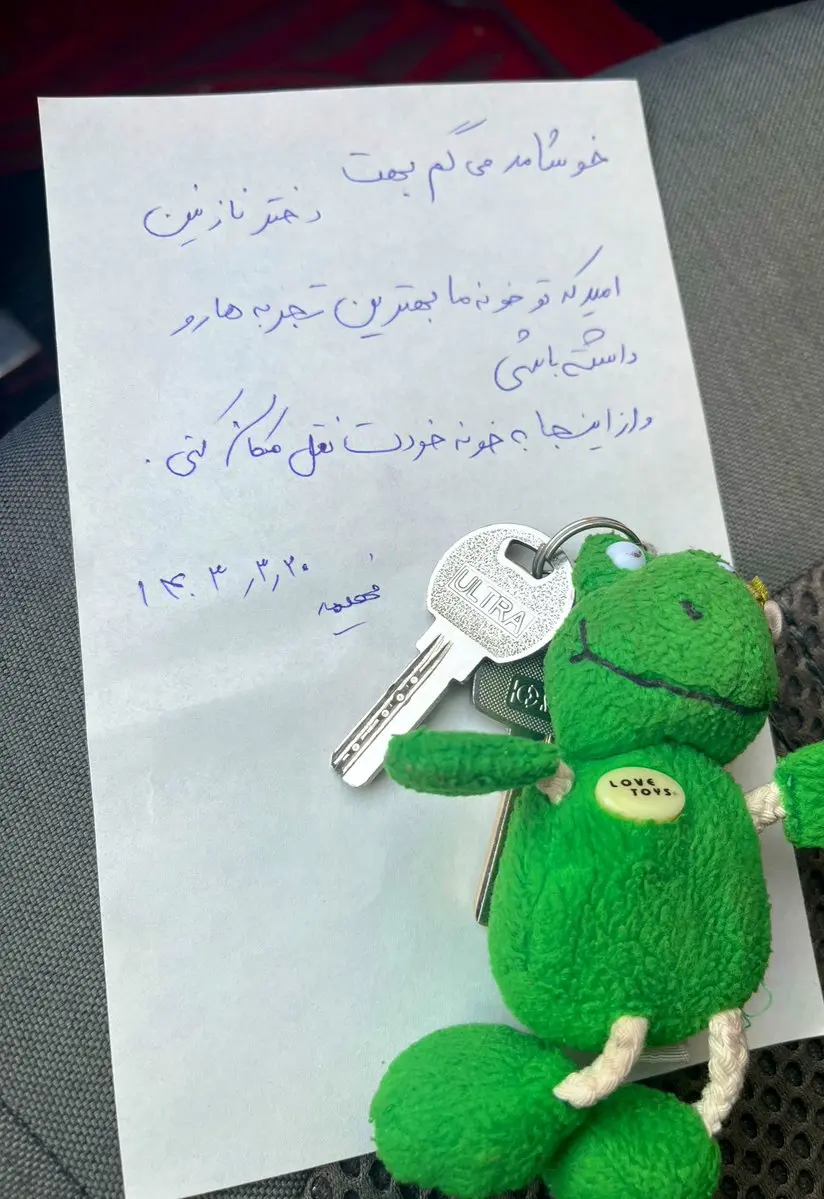 خوشامد می گم بهت
دختر نازنین
امید که تو خونه ما بهترین تجربه هارو
داشته باشی
و از اینجا به خونه خودت نقل مکان کنی.
فهیمه ۱۴۰۳٫۳٫۲۰
ULTRA
LOVE
TOYS